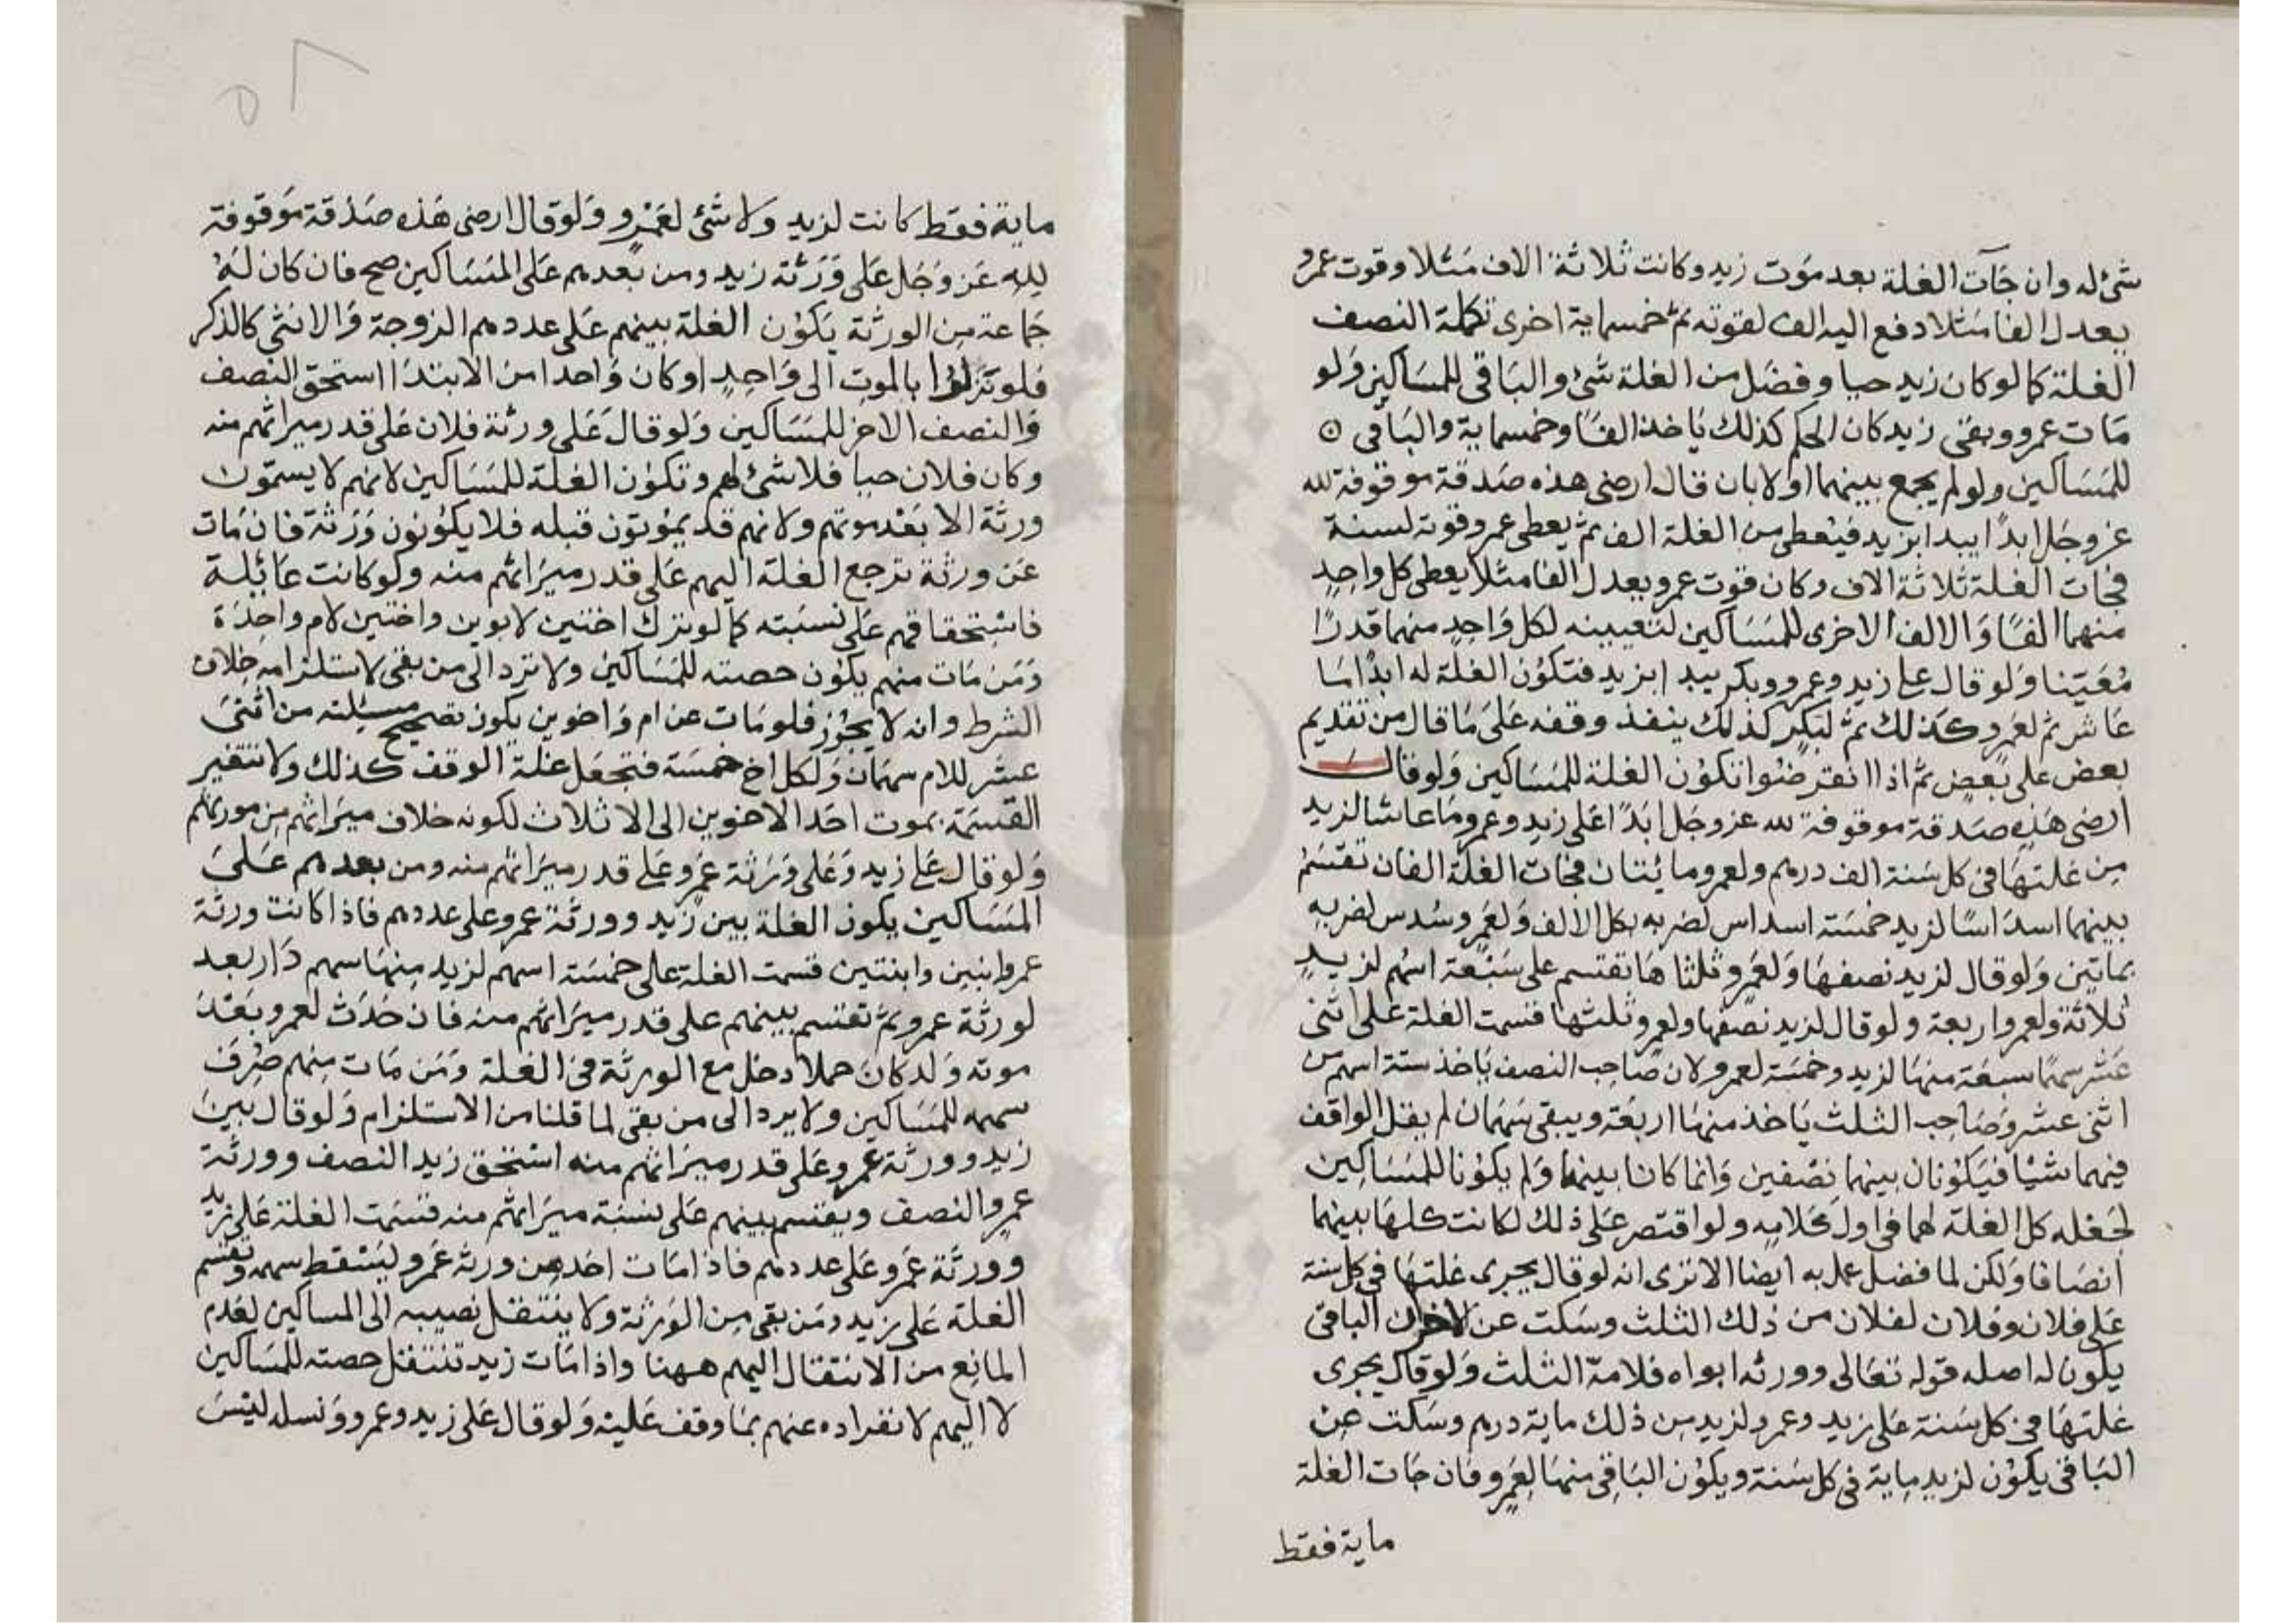 شئ له وان جآت الغلة بعد موت زيد وكانت ثلاثة الاف مثلا وقوت عمرو
يعدل الفا مثلا دفع اليه الف لقوته ثم خمسماية اخرى تكملة النصف
الغلة كما لو كان زيد حيا وفضل من الغلة شئ والباقى للمساكين ولو
مات عمرو وبقى زيد كان الحكم كذلك ياخذ الفا وخمسماية والباقى
للمساكين ولو لم يجمع بينهما اولا بان قال ارضى هذه صدقة موقوفة لله
عز وجل ابدا يبدا بزيد فيعطى من الغلة الف ثم يعطى عمرو قوته لسنة
فجات الغلة ثلاثة الاف وكان قوت عمرو يعدل الفا مثلا يعطى كل واحد
منهما الفا والالف الاخرى للمساكين لتعيينه لكل واحد منهما قدرا
معينا ولو قال على زيد وعمرو وبكر يبدا بزيد فتكون الغلة له ابدا ما
عاش ثم لعمرو كذلك ثم لبكر كذلك ينفذ وقفه على ما قال من تقديم
بعض على بعض ثم اذا انقرضوا تكون الغلة للمساكين ولو قال
ارضى هذه صدقة موقوفة لله عز وجل ابدا على زيد وعمرو ما عاشا لزيد
من غلتها فى كل سنة الف درهم ولعمرو مائتان فجات الغلة الفان تقسم
بينهما اسداسا لزيد خمسة اسداس لضربه بكل الالف ولعمرو سدس لضربه
بماتين ولو قال لزيد نصفها ولعمرو ثلثاها تقتسم على سبعة اسهم لزيد
ثلاثة ولعمرو اربعة ولو قال لزيد نصفها ولعمرو ثلثها قسمت الغلة على اثنى
عشر سهما سبعة منها لزيد وخمسة لعمرو لان صاحب النصف ياخذ ستة اسهم من
اثنى عشر وصاحب الثلث ياخذ منها اربعة ويبقى سهمان لم يقل الواقف
فيهما شيا فيكونان بينهما نصفين وانما كانا بينهما ولم يكونا للمساكين
لجعله كل الغلة لهما فى اول كلامه ولو اقتصر على ذلك لكانت كلها بينهما
انصافا ولكن لما فضل عمل به ايضا الا ترى انه لو قال يجرى غلتها فى كل سنة
على فلان وفلان لفلان من ذلك الثلث وسكت عن الاخر الباقى
يكون له اصله قوله تعالى وورثه ابواه فلامه الثلث ولو قال يجرى
غلتها فى كل سنة على زيد وعمرو لزيد من ذلك ماية درهم وسكت عن
الباقى يكون لزيد ماية فى كل سنة ويكون الباقى منها لعمرو فان جات الغلة
ماية فقط
ماية فقط كانت لزيد ولا شئ لعمرو ولو قال ارضى هذه صدقة موقوفة
لله عز وجل على ورثة زيد ومن بعدهم على المساكين صح فان كان له
جماعة من الورثة يكون الغلة بينهم على عددهم الزوجة والانثى كالذكر
فلو تنزلوا بالموت الى واحد او كان واحدا من الابتدا استحق النصف
والنصف الاخر للمساكين ولو قال على ورثة فلان على قدر ميراثهم منه
وكان فلان حيا فلا شئ لهم وتكون الغلة للمساكين لانهم لا يسمون
ورثة الا بعد موتهم ولانهم قد يموتون قبله فلا يكونون ورثة فان مات
عن ورثة ترجع الغلة اليهم على قدر ميراثهم منه ولو كانت عائلة
فاستحقاقهم على نسبته كما لو ترك اختين لابوين واختين لام واحدة
ومن مات منهم يكون حصته للمساكين ولا ترد الى من بقى لاستلزامه خلاف
الشرط وانه لا يجوز فلو مات عن ام واخوين يكون تصحيح مسئلته من اثنى
عشر للام سهمان ولكل اخ خمسة فتجعل غلة الوقف كذلك ولا تتغير
القسمة بموت احد الاخوين الى الاثلاث لكونه خلاف ميراثهم من مورثهم
ولو قال على زيد وعلى ورثة عمرو على قدر ميراثهم منه ومن بعدهم على
المساكين يكون الغلة بين زيد وورثة عمرو على عددهم فاذا كانت ورثة
عمرو ابنين وابنتين قسمت الغلة على خمسة اسهم لزيد منها سهم واربعة
لورثة عمرو ثم تقتسم بينهم على قدر ميراثهم منه فان حدث لعمرو بعد
موته ولد كان حملا دخل مع الورثة فى الغلة ومن مات منهم صرف
سهمه للمساكين ولا يرد الى من بقى لما قلنا من الاستلزام ولو قال بين
زيد وورثة عمرو على قدر ميراثهم منه استحق زيد النصف وورثة
عمرو النصف ويقتسم بينهم على نسبة ميراثهم منه قسمت الغلة على زيد
وورثة عمرو على عددهم فاذا مات احد من ورثة عمرو ليسقط سهمه وتقسم
الغلة على زيد ومن بقى من الورثة ولا ينتقل نصيبه الى المساكين لعدم
المانع من الانتقال اليهم ههنا واذا مات زيد تنتقل حصته للمساكين
لا اليهم لانفراده عنهم بما وقف عليه ولو قال على زيد وعمرو ونسله ليس